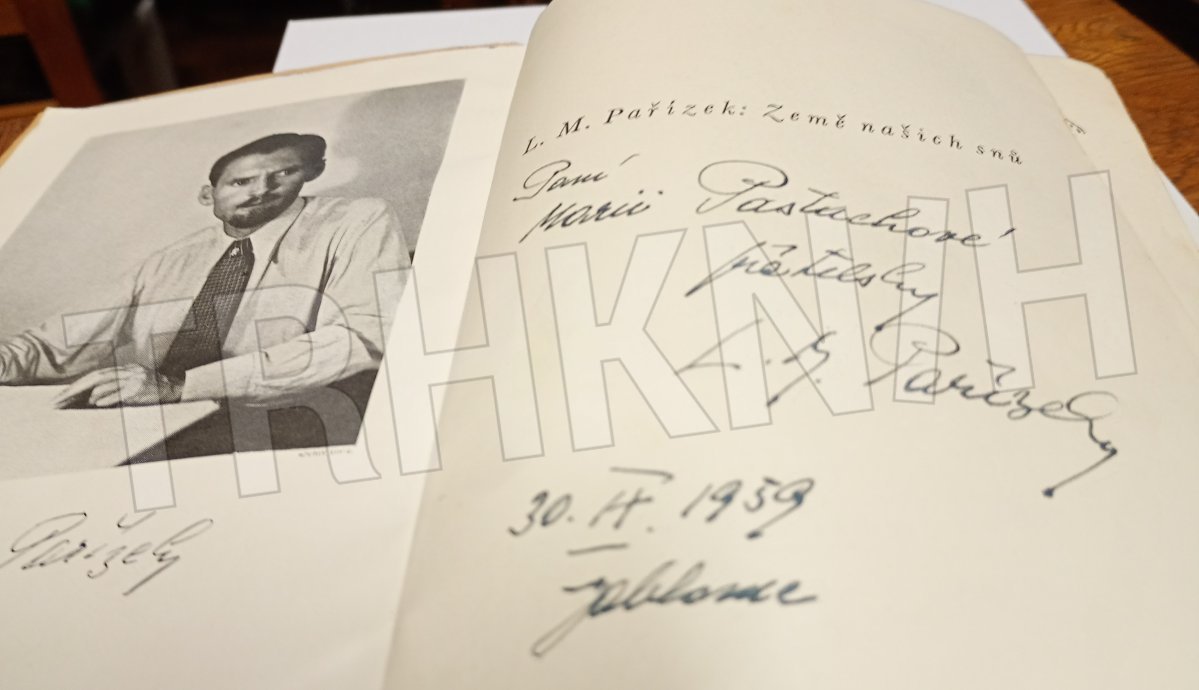 Pařízek
L. M. Pařízek: Země našich snů
Paní
Marii Pastuchové
přátelsky
L. M. Pařízek
30. IX. 1959
Jablonec
TRHKNIH